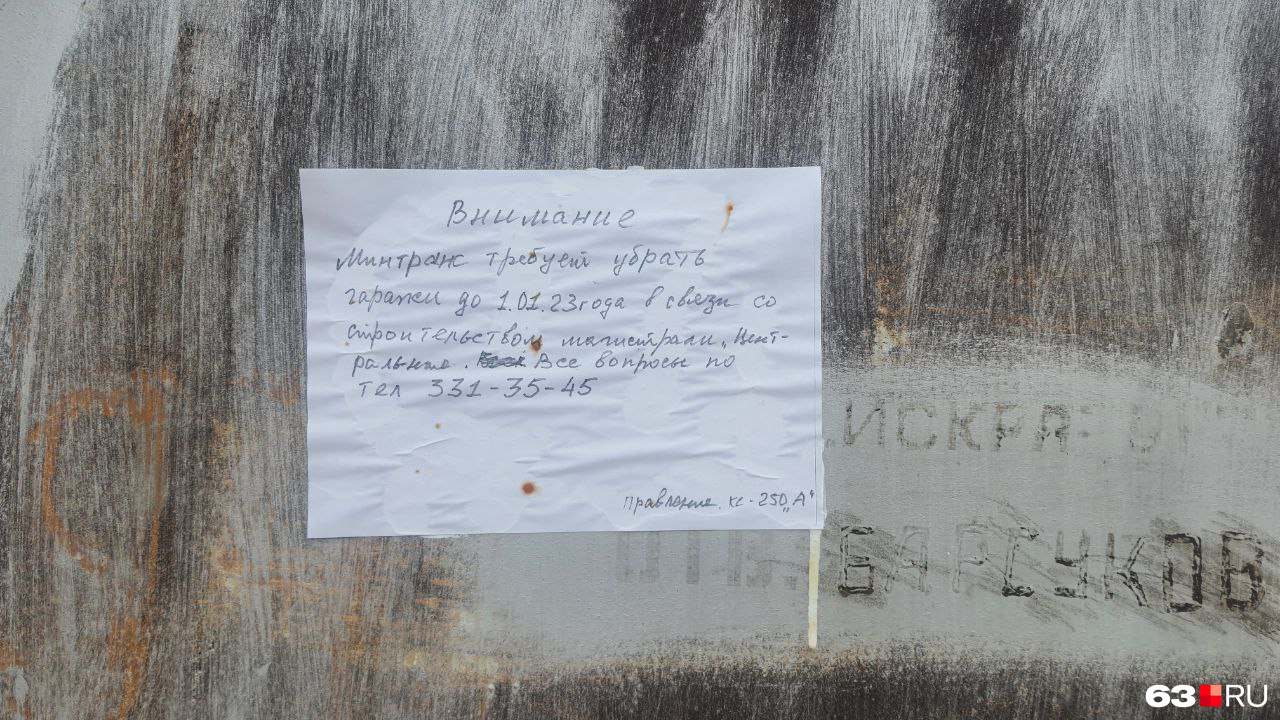 Внимание
Минтранс требует убрать
гаражи до 1.01.23года в связи со
строительством магистрали „Цент-
ральная. Все вопросы по
тел 331-35-45
Правление. кс-250„А“
ИСКРА-
БАРСУКОВ
63 RU